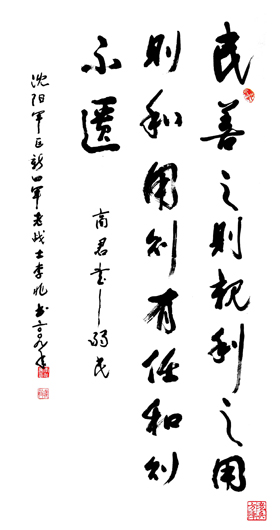 民善之则親利之用
则和用则有任和则
不匮
商君书—弱民
沈阳军区新四军老战士李兆书二〇〇九年